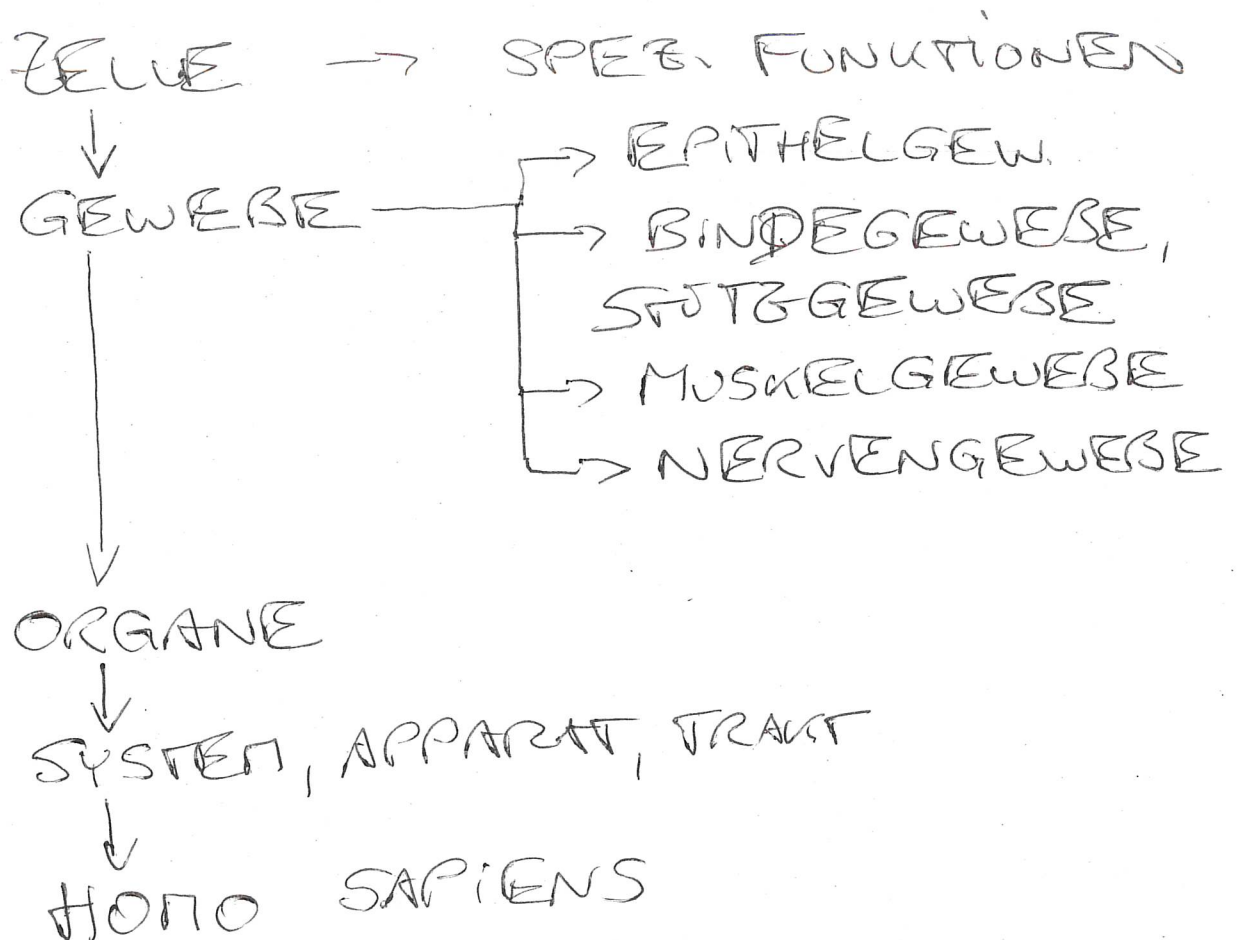 ZELLE → SPEZ. FUNKTIONEN
↓
GEWEBE → EPITHELGEW.
→ BINDEGEWEBE,
STÜTZGEWEBE
→ MUSKELGEWEBE
→ NERVENGEWEBE
↓
ORGANE
↓
SYSTEM, APPARAT, TRAKT
↓
HOMO SAPIENS